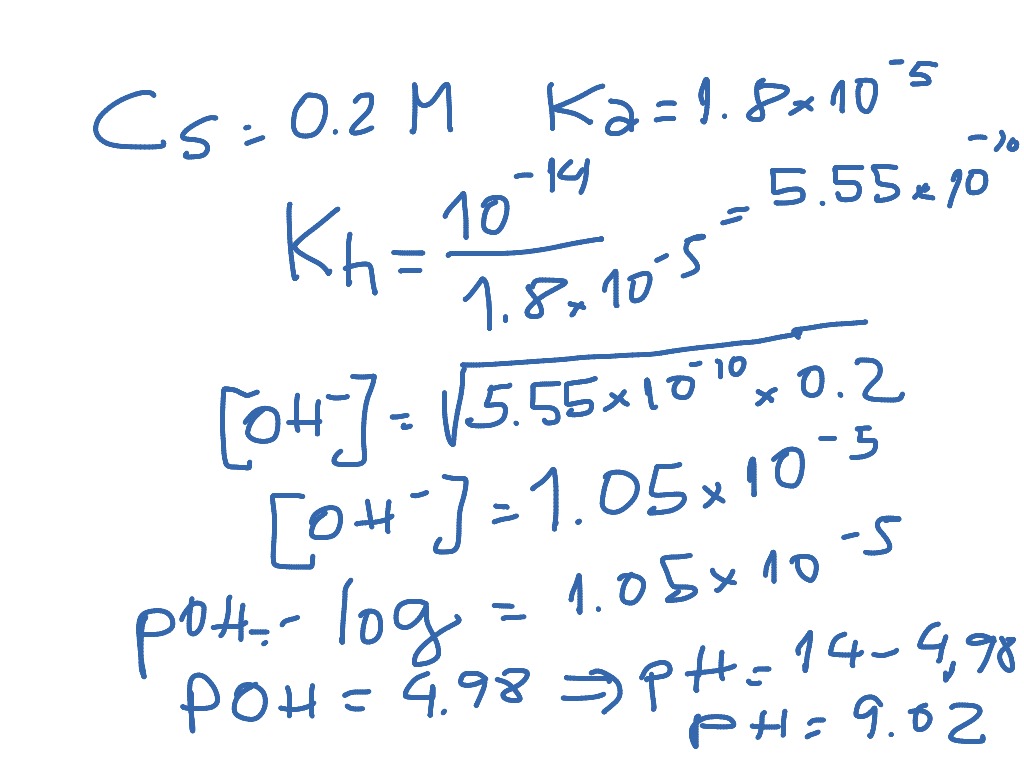 Cs = 0.2 M Ka = 1.8 × 10⁻⁵
Kh = 10⁻¹⁴ / 1.8 × 10⁻⁵ = 5.55 × 10⁻¹⁰
[OH⁻] = √5.55 × 10⁻¹⁰ × 0.2
[OH⁻] = 1.05 × 10⁻⁵
pOH = - log = 1.05 × 10⁻⁵
POH = 4.98 ⇒ pH = 14 - 4,98
pH = 9.02